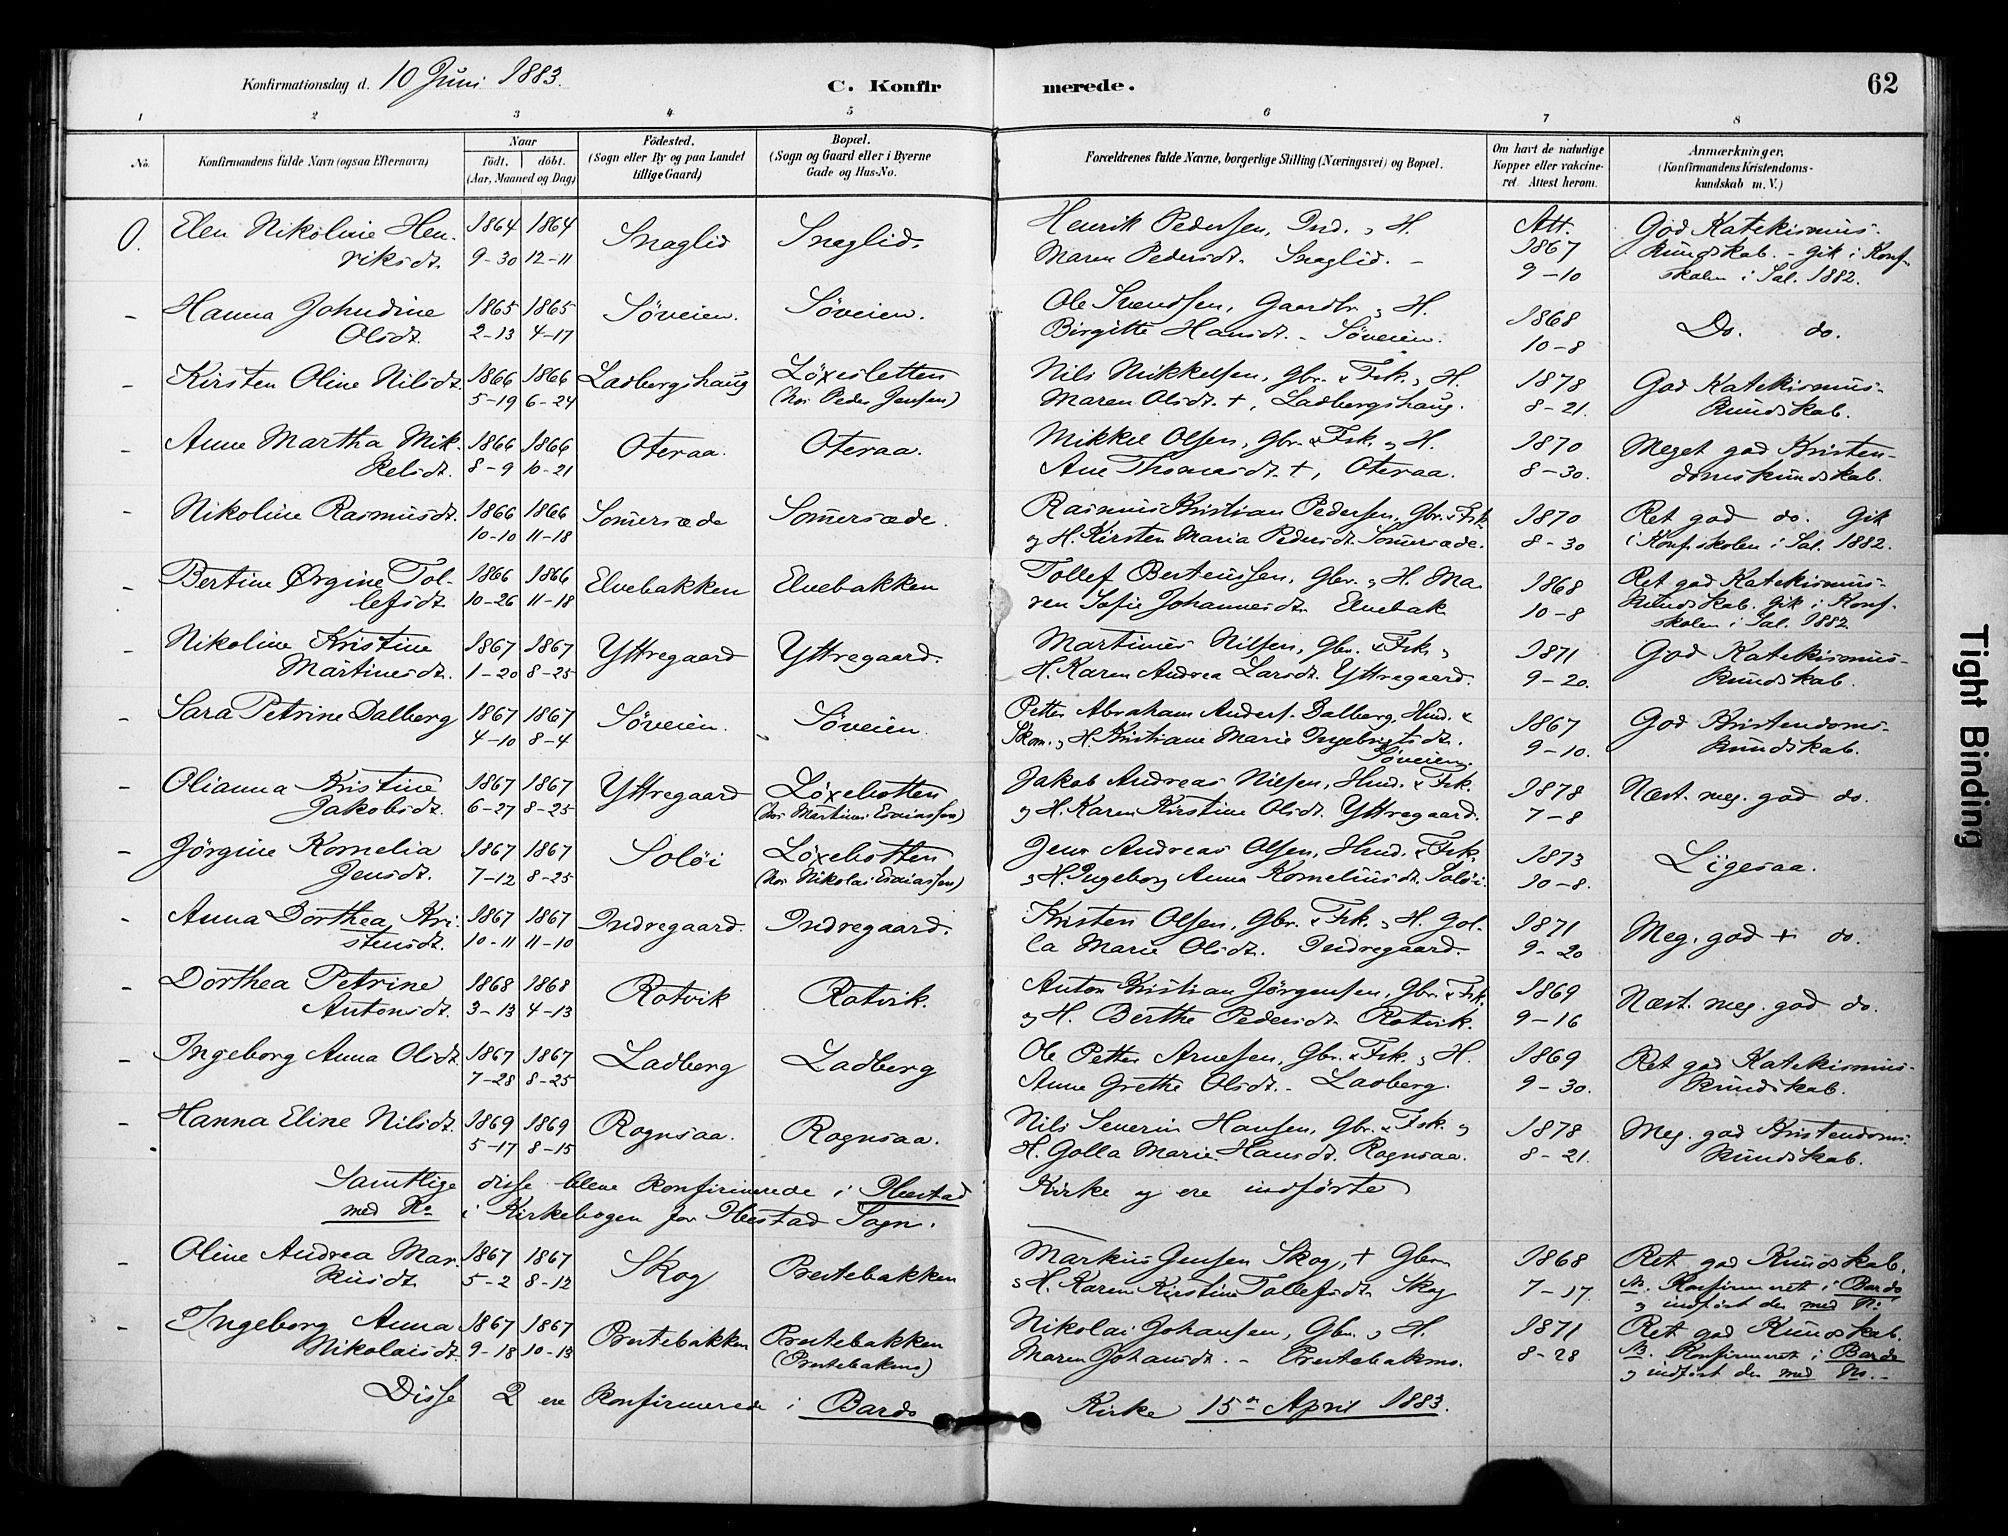 Konfirmationsdag d. 10 Juni 1883.
C. Konfirmerede.
62
1 2 3 4 5 6 7 8
No.
Konfirmandens fulde Navn (ogsaa Efternavn)
Naar
födt. döbt.
(Aar, Maaned og Dag)
Födested.
(Sogn eller By og paa Landet
tillige Gaard)
Bopæl.
(Sogn og Gaard eller i Byerne
Gade og Hus-No.
Forældrenes fulde Navne, borgerlige Stilling (Næringsvei) og Bopæl.
Om havt de naturlige
Kopper eller vakcine-
ret. Attest herom.
Anmærkninger,
(Konfirmandens Kristendoms-
kundskab m. V.)
0. Elen Nikoline Hen- 1864 1864 Snaglid Snaglid. Henrik Pedersen, Ind. og H. Att. 1867 God Katekismus-
riksdt. 9-30 12-11 Maren Pedersdt. Snaglid. - 9-10 kundskab. - Gik i Konf-
skolen i Sal. 1882.
- Hanna Johndine 1865 1865 Söveien. Söveien. Ole Svendsen, Gaardbr. og H. 1868 Do. do.
Olsdt. 2-13 4-17 Birgitte Hansdt. - Söveien. 10-8
- Kirsten Oline Nilsdt. 1866 1866 Ladbergshaug Löxesletten Nils Mikkelsen, Gbr. & Fsk. og H. 1878 God Katekismus-
5-19 6-24 (hos Peder Jensen) Maren Olsdt. +, Ladbergshaug. 8-21. kundskab.
- Anne Martha Mik- 1866 1866 Oteraa. Oteraa. Mikkel Olsen, Gbr. & Fsk. og H. 1870 Meget god Kristen-
kelsdt. 8-9 10-21 Ane Thomasdt. +, Oteraa. 8-30. domskundskab.
- Nikoline Rasmusdt. 1866 1866 Somersæde Somersæde. Rasmus Kristian Pedersen, Gbr. & Fsk. 1870 Ret god do. Gik
10-10 11-18 og H. Kirsten Maria Pedersdt. Somersæde. 8-30 i Konf.skolen i Sal. 1882.
- Bertine Ørgine Tol- 1866 1866 Elvebakken Elvebakken Tollef Berteussen, Gbr. og H. Ma- 1868 Ret god Katekismus-
lefsdt. 10-26 11-18 ren Sofie Johannesdt. Elvebak 10-8 kundskab. Gik i Konf-
skolen i Sal. 1882
- Nikoline Kristine 1867 1867 Yttregaard Yttregaard. Martinus Nilsen, Gbr. & Fsk. og 1871 God Katekismus-
Martinusdt. 1-20 8-25 H. Karen Andrea Larsdt. Yttregaard. 9-20. kundskab.
- Sara Petrine Dalberg 1867 1867 Söveien. Söveien. Petter Abraham Anders. Dalberg, Hmd. & 1867 God Kristendoms-
4-10 8-4 Skom. og H. Kristiane Marie Ingebrigtsdt. 9-10. kundskab.
Söveien.
- Olianna Kristine 1867 1867 Yttregaard Löxebotten Jakob Andreas Nilsen, Hmd. & Fsk. 1878 Næst. meg. god do.
Jakobsdt. 6-27 8-25 (hos Martinus Esaiassen) og H. Karen Kirstine Olsdt. Yttregaard. 7-8
- Jörgine Kornelia 1867 1867 Solöi Löxebotten Jens Andreas Olsen, Hmd. & Fsk. 1873 Ligesaa.
Jensdt. 7-12 8-25 (hos Nikolai Esaiassen) og H. Ingeborg Anna Korneliusdt. Solöi. 10-8.
- Anna Dorthea Kri- 1867 1867 Indregaard. Indregaard. Kristen Olsen, Gbr. & Fsk. og H. Gol- 1871 Meg. god + do.
stensdt. 10-11 11-10 la Marie Olsdt. Indregaard. 9-20
- Dorthea Petrine 1868 1868 Rotvik Rotvik. Anton Kristian Jörgensen, Gbr. & Fsk. 1869 Næst. meg. god do.
Antonsdt. 3-13 4-13 og H. Berthe Pedersdt. Rotvik. 9-16
- Ingeborg Anna Olsdt. 1867 1867 Ladberg Ladberg Ole Petter Arnesen, Gbr. & Fsk. og H. 1869 Ret god Katekismus-
7-28 8-25 Anne Grethe Olsdt. - Ladberg. 9-30. kundskab.
- Hanna Eline Nilsdt. 1869 1869 Rognsaa. Rognsaa. Nils Severin Hansen, Gbr. & Fsk. og 1878 Meg. god Kristendoms-
5-17 8-15 H. Golla Marie Hansdt. Rognsaa. 8-21. kundskab.
Samtlige disse bleve konfirmerede i Ibestad Kirke og ere indførte
med No i Kirkebogen for Ibestad Sogn.
- Oline Andrea Mar- 1867 1867 Skog Prestebakken Markus Jensen Skog, + Gbr. 1868 Ret god Kundskab.
kusdt. 5-2 8-12 og H. Karen Kirstine Tollefsdt. Skog 7-17. NB. Konfirmeret i Bardo
og indført der med No
- Ingeborg Anna 1867 1867 Prestebakken Prestebakken Nikolai Johansen, Gbr. og H. 1871 Ret god Kundskab.
Nikolaisdt. 9-18 10-13 (Prestebakmo) Maren Johansdt. - Prestebakmo. 8-28 NB. Konfirmeret i Bardo
og indført der med No. -
Disse 2 ere konfirmerede i Bardo Kirke 15de April 1883.
Tight Binding